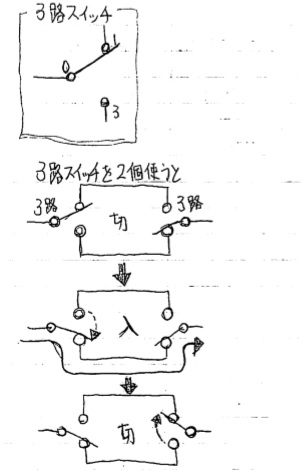 3路スイッチ
1
0
3
3路スイッチを2個使うと
3路
3路
切
入
切